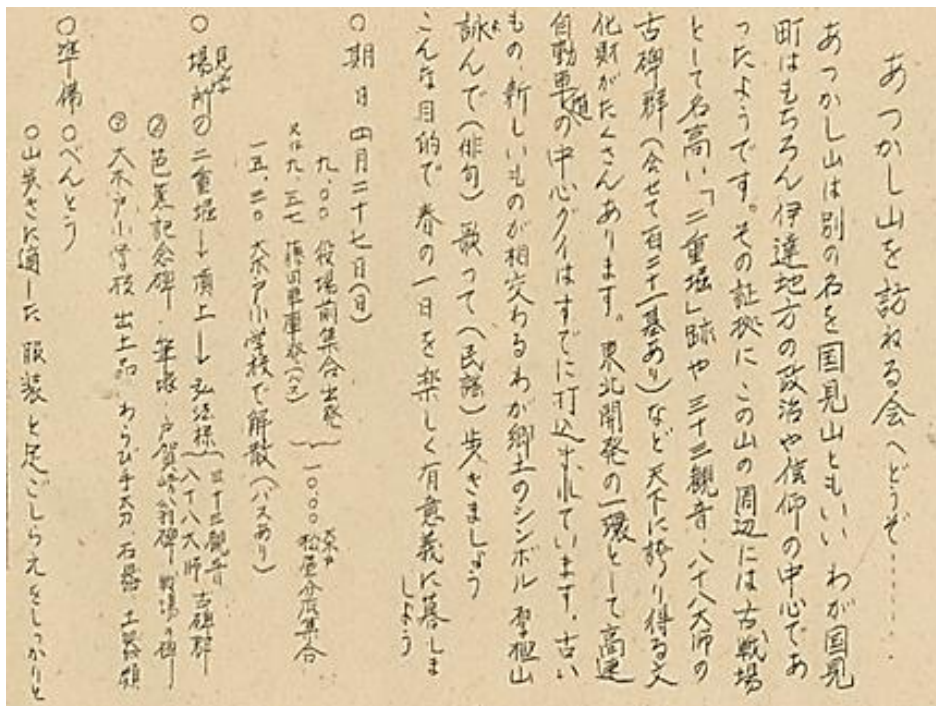 あつかし山を訪ねる会へどうぞ……
あつかし山は別の名を国見山ともいい わが国見
町はもちろん伊達地方の政治や信仰の中心であ
ったようです。その証拠に この山の周辺には古戦場
として名高い「二重堀」跡や 三十三観音・八十八大師の
古碑群(合せて百二十一基あり)など 天下に誇り得る文
化財がたくさんあります。東北開発の一環として高速
自動車道の中心グイはすでに打込まれています。古い
もの、新しいものが相交わるわが郷土のシンボル 山
詠んで(俳句) 歌って(民謡) 歩きましょう
こんな目的で 春の一日を楽しく有意義に暮しま
しょう
○期 日 四月二十七日(日)
九.〇〇 役場前集合出発
九.三七 藤田車庫発(バス)
一〇.〇〇 松屋分店集合
一五.二〇 大木戸小学校で解散(バスあり)
○見学場所 ① 二重堀→頂上→弘法様 三十三観音 八十八大師 古碑群
② 芭蕉記念碑・筆塚・戸賀崎翁碑・戦場の碑
③ 大木戸小学校 出土品 わらび手太刀・石器 土器類
○準備 ○べんとう
○山歩きに適した服装と足ごしらえをしっかりと